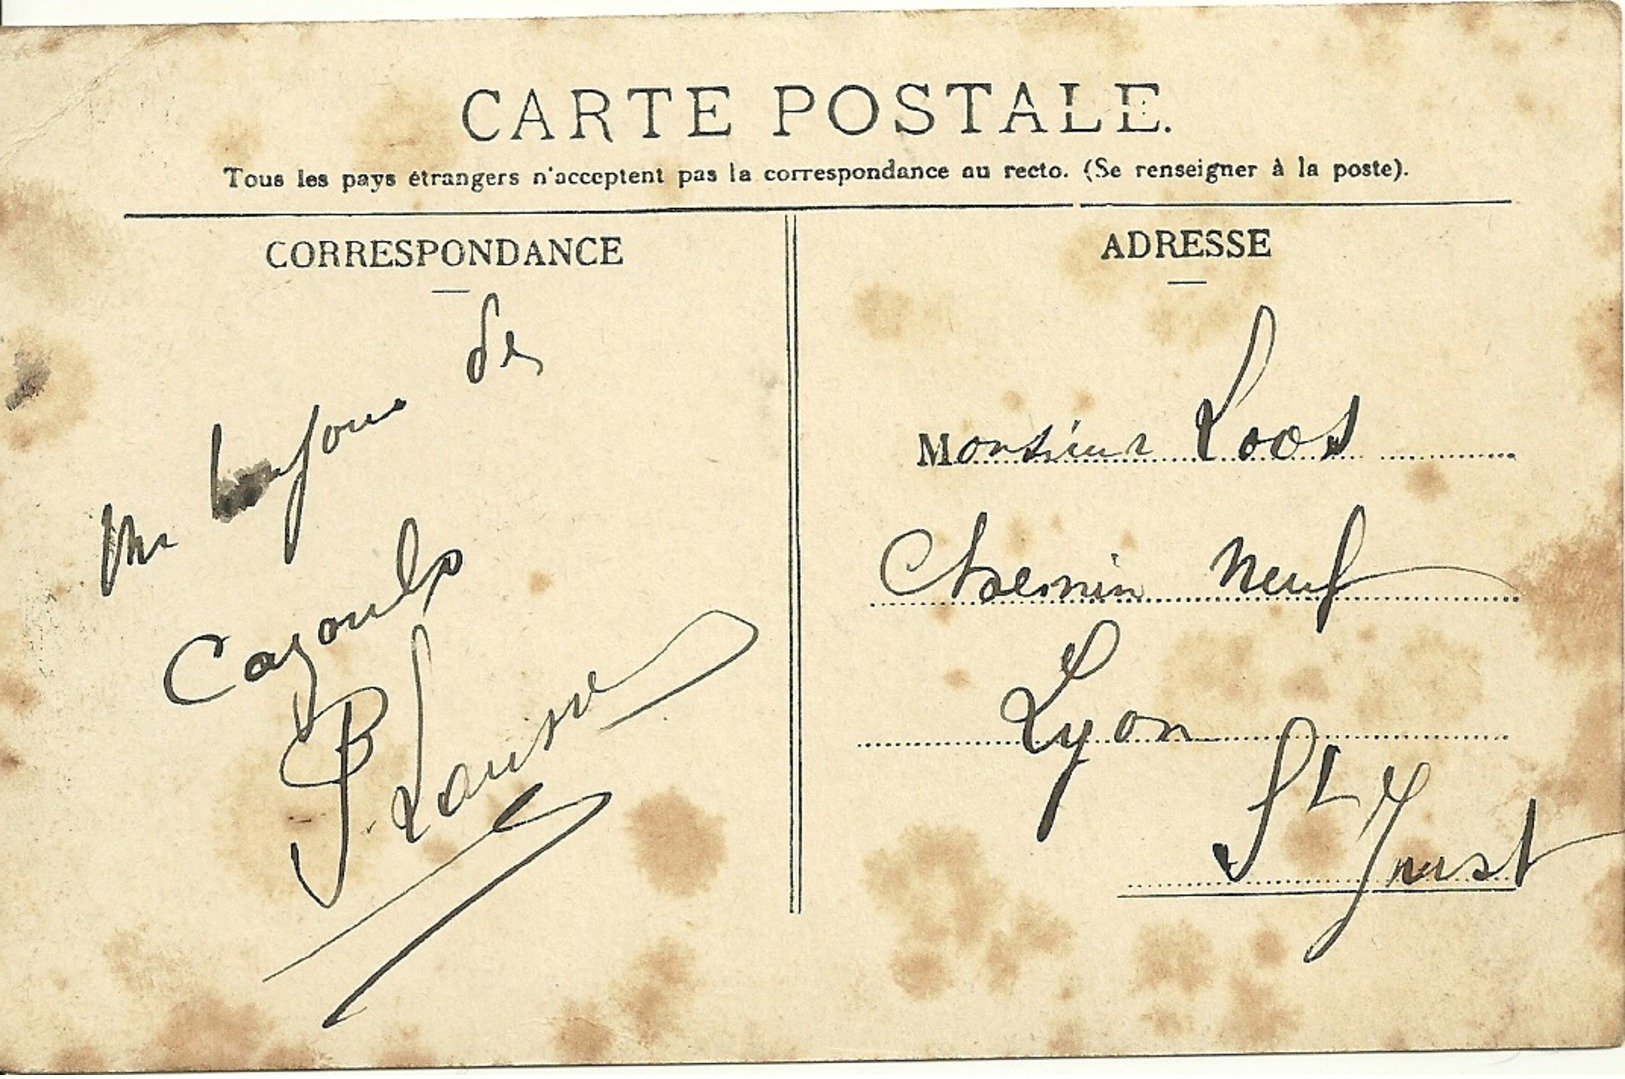 CARTE POSTALE.
Tous les pays étrangers n'acceptent pas la correspondance au recto. (Se renseigner à la poste).
CORRESPONDANCE
Un bonjour de
Cazouls
ADRESSE
Monsieur Loos
Chemin Neuf
Lyon
St Just